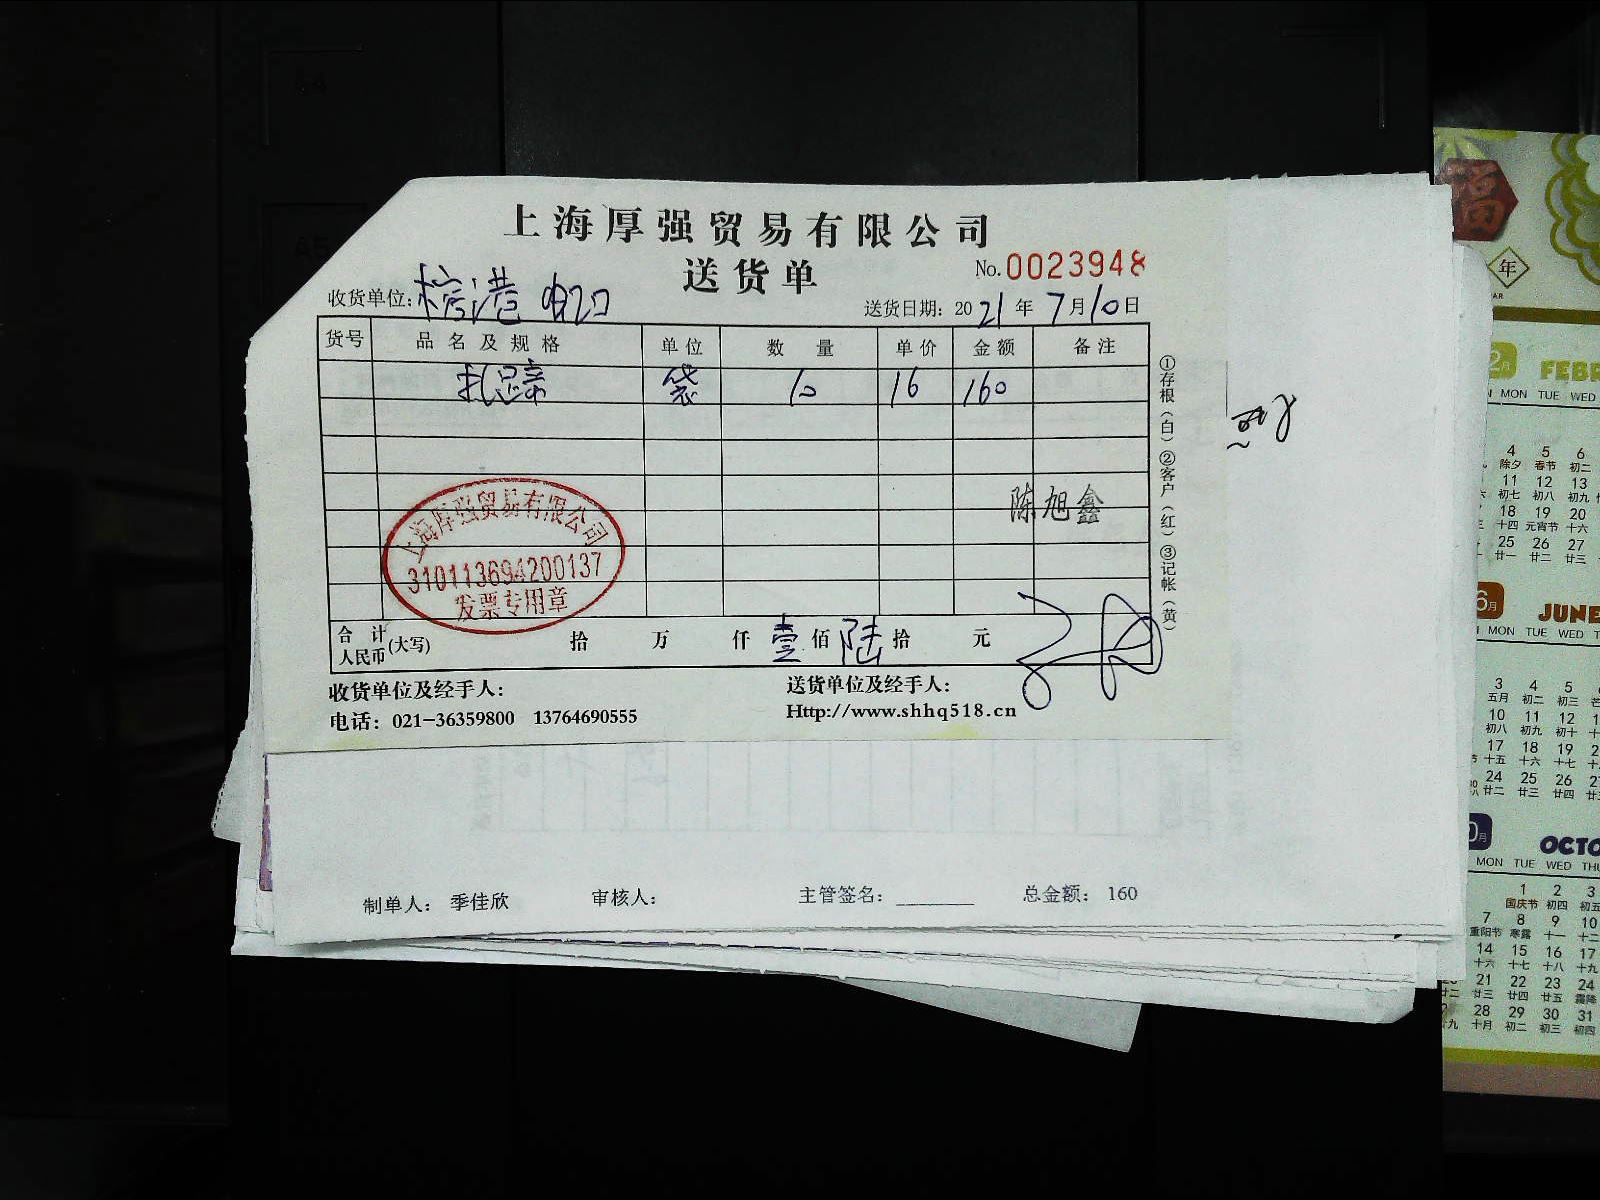 上海厚强贸易有限公司
送货单
No.0023948
收货单位:
送货日期: 2021年7月10日
货号 品名及规格 单位 数量 单价 金额 备注
扎 带 袋 10 16 160
陈旭鑫
①存根(白)②客户(红)③记帐(黄)
上海厚强贸易有限公司
310113694200137
发票专用章
合计人民币(大写) 拾 万 仟 壹 佰 陆 拾 元
收货单位及经手人: 送货单位及经手人:
电话: 021-36359800 13764690555 Http://www.shhq518.cn
制单人: 季佳欣 审核人: 主管签名: ________ 总金额: 160
福
年
2月 FEBR
MON TUE WED
4 5 6
除夕 春节 初二
11 12 13
初七 初八 初九
18 19 20
十四 元宵节 十六
25 26 27
廿一 廿二 廿三
6月 JUNE
MON TUE WED
3 4 5
五月 初二 初三
10 11 12
初八 初九 初十
17 18 19
十五 十六 十七
24 25 26
廿二 廿三 廿四
OCTO
MON TUE WED THU
1 2 3
国庆节 初四 初五
7 8 9 10
重阳节 寒露 十一 十二
14 15 16 17
十六 十七 十八 十九
21 22 23 24
廿三 廿四 廿五 霜降
28 29 30 31
十月 初二 初三 初四